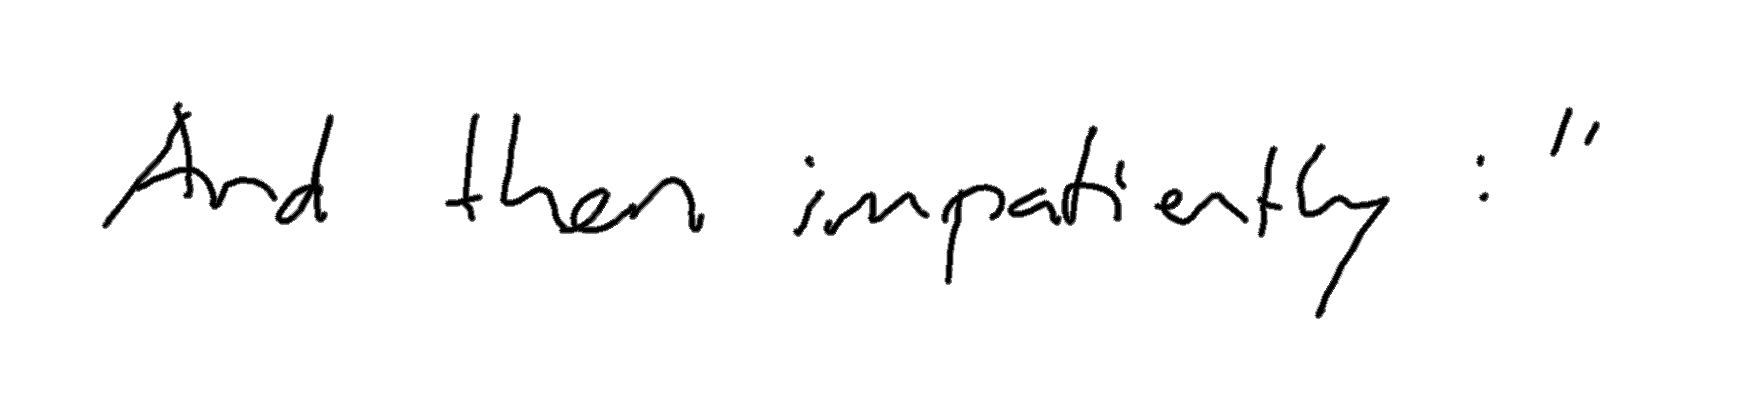 And then impatiently : "